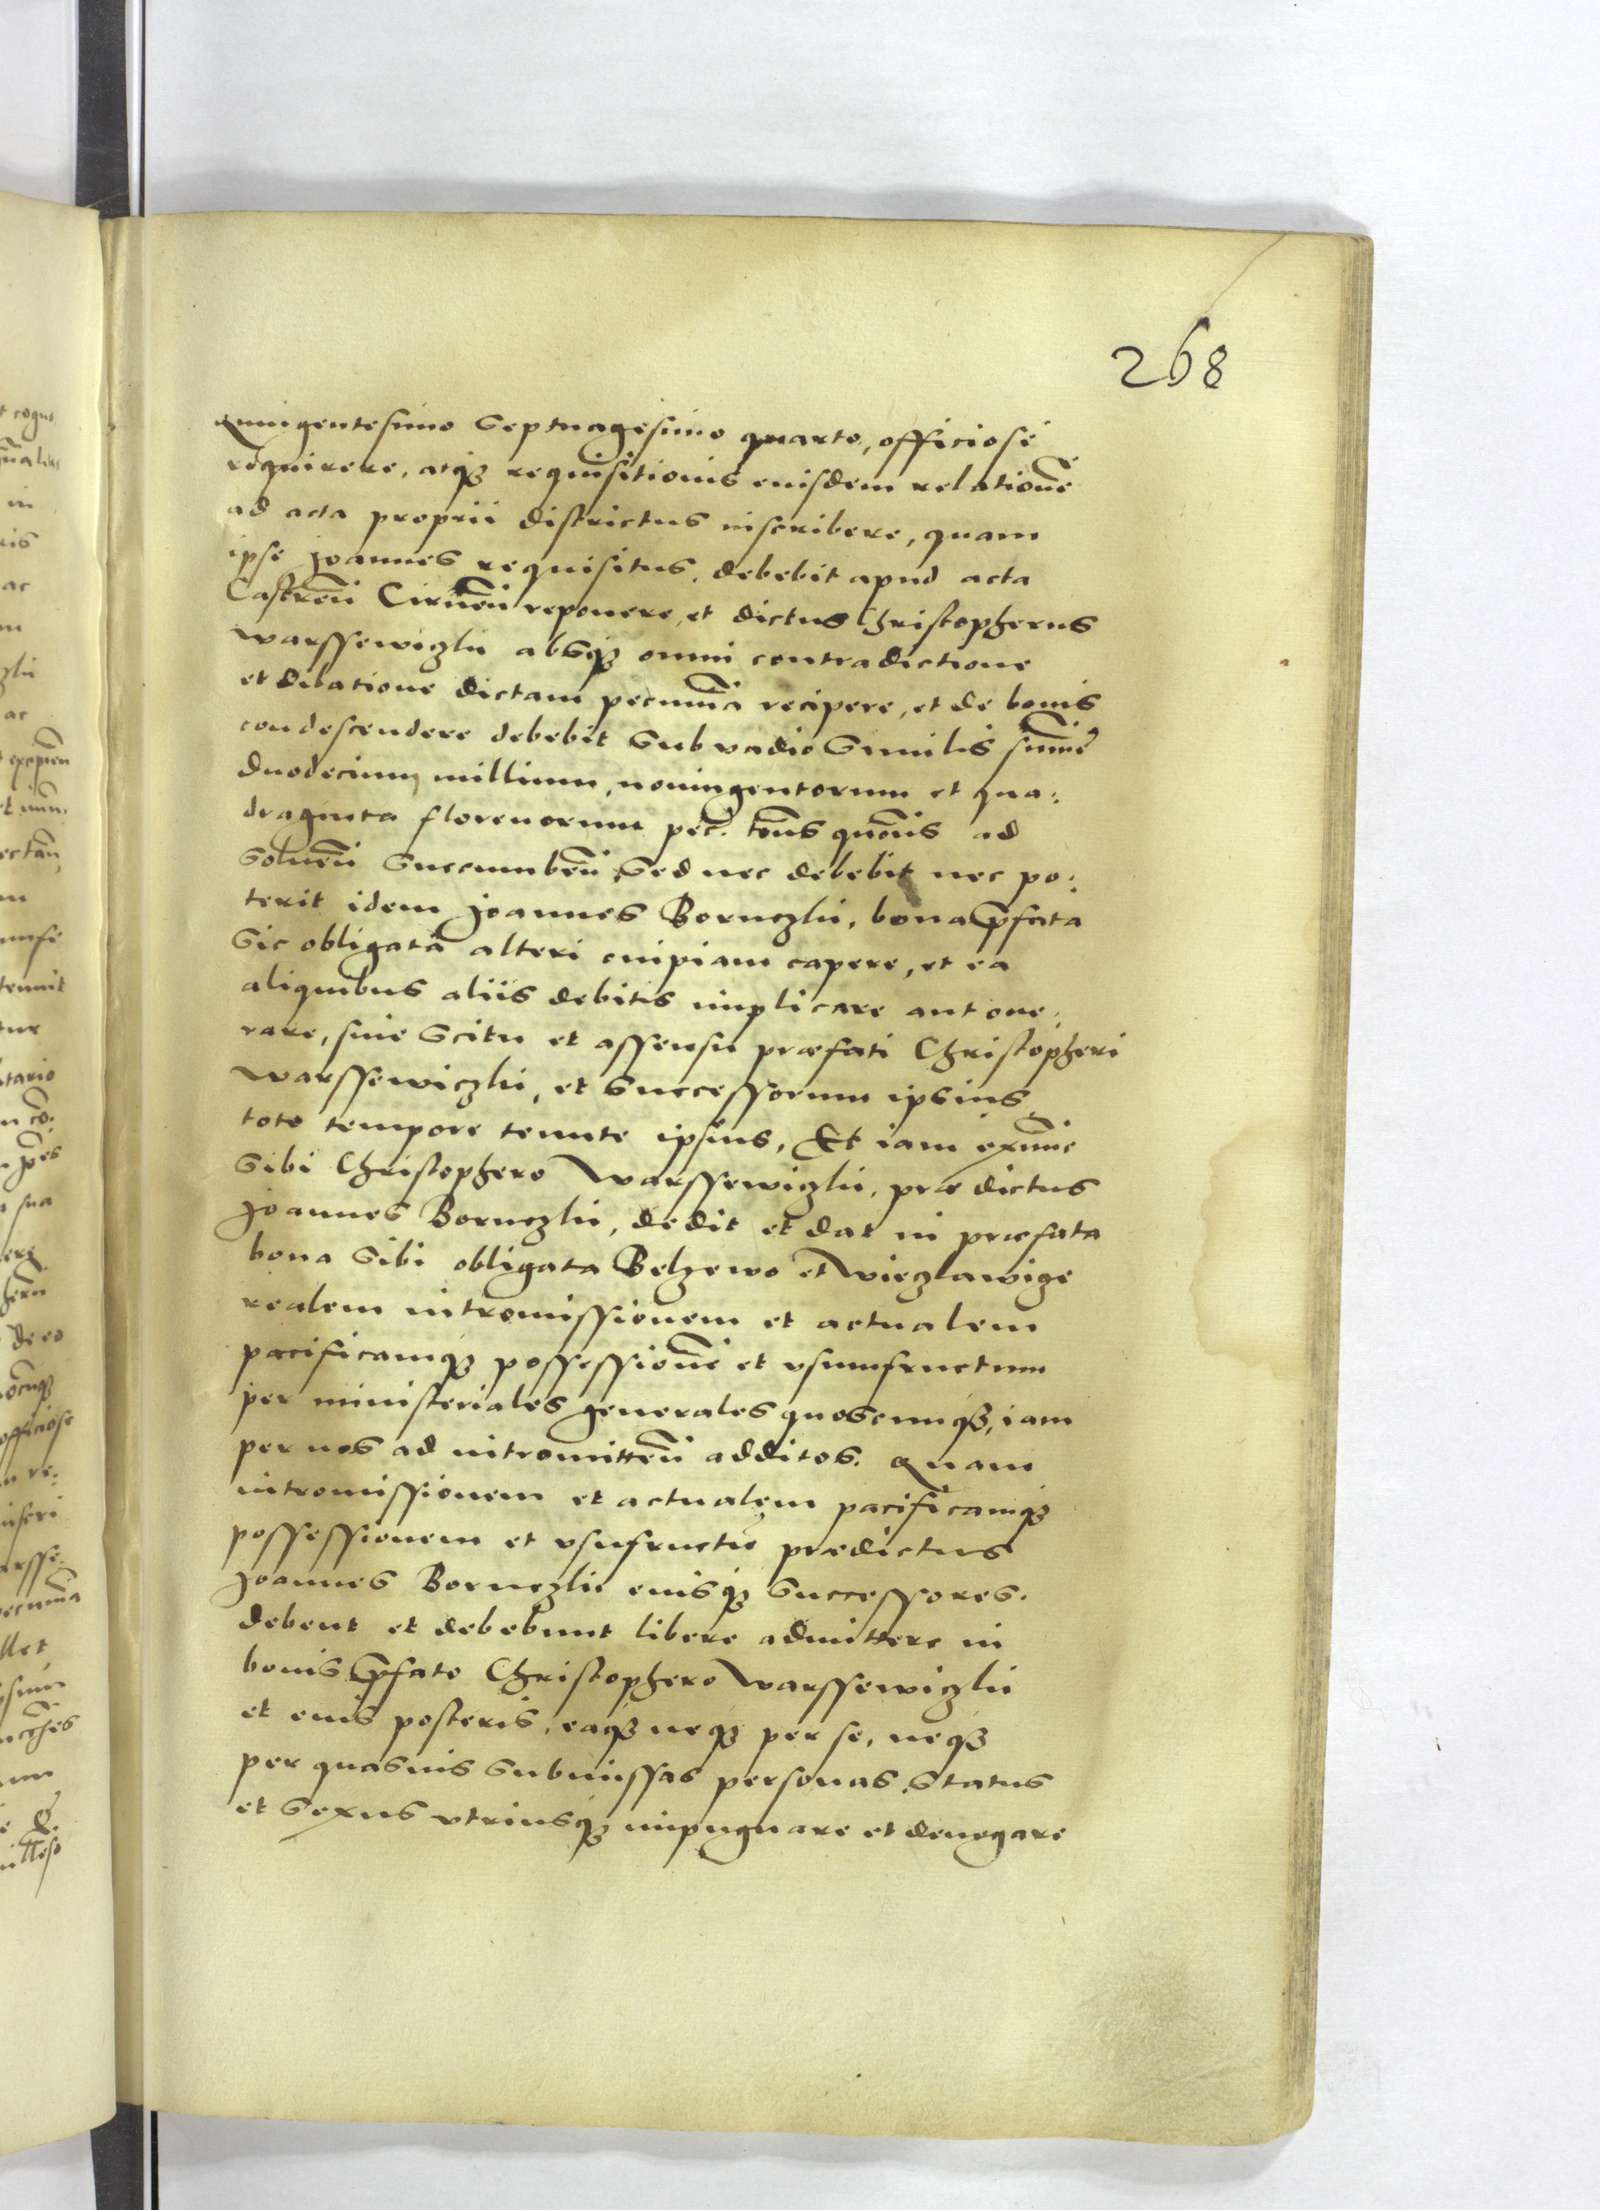 268
quingentesimo Septuagesimo quarto, officiose
requirere, atq3 requisitionis eiusdem relationē
ad acta proprii districtus inscribere, quam
ipse Joannes requisitus, debebit apud acta
Castreñ Cirneñ reponere, et dictus Christopherus
Warssewiczki absq3 omni contradictione
et dilatione dictam pecuniā recipere, et de bonis
condescendere debebit sub vadio similis sum̄e
duodecim millium, noningentorum et qua:
draginta florenorum pec. ad
soluen̄ succumben̄, Sed nec debebit nec po:
terit idem Joannes Boruczki, bona p̄fata
sic obligata alteri cuipiam capere, et ea
aliquibus aliis debitis implicare aut one:
rare, sine scitu et assensu præfati Christopheri
Warssewiczki, et successorum ipsius,
toto tempore tenute ipsius, Et iam exnunc
sibi Christophero Warssewiczki, prædictus
Joannes Boruczki, dedit et dat in præfata
bona sibi obligata Belzewo et Wieczlawize
realem intromissionem et actualem
pacificamq3 possessionē et vsumfructum
per ministeriales generales quoscunq3, iam
per nos ad intromitteñ additos. Quam
intromissionem et actualem pacificamq3
possessionem et vsufructū prædictus
Joannes Boruczki eiusq3 successores.
debent et debebunt libere admittere in
bonis p̄fato Christophero Warssewiczki
et eius posteris, eaq3 neq3 per se, neq3
per quasuis submissas personas, status
et sexus vtriusq3 impugnare et denegare